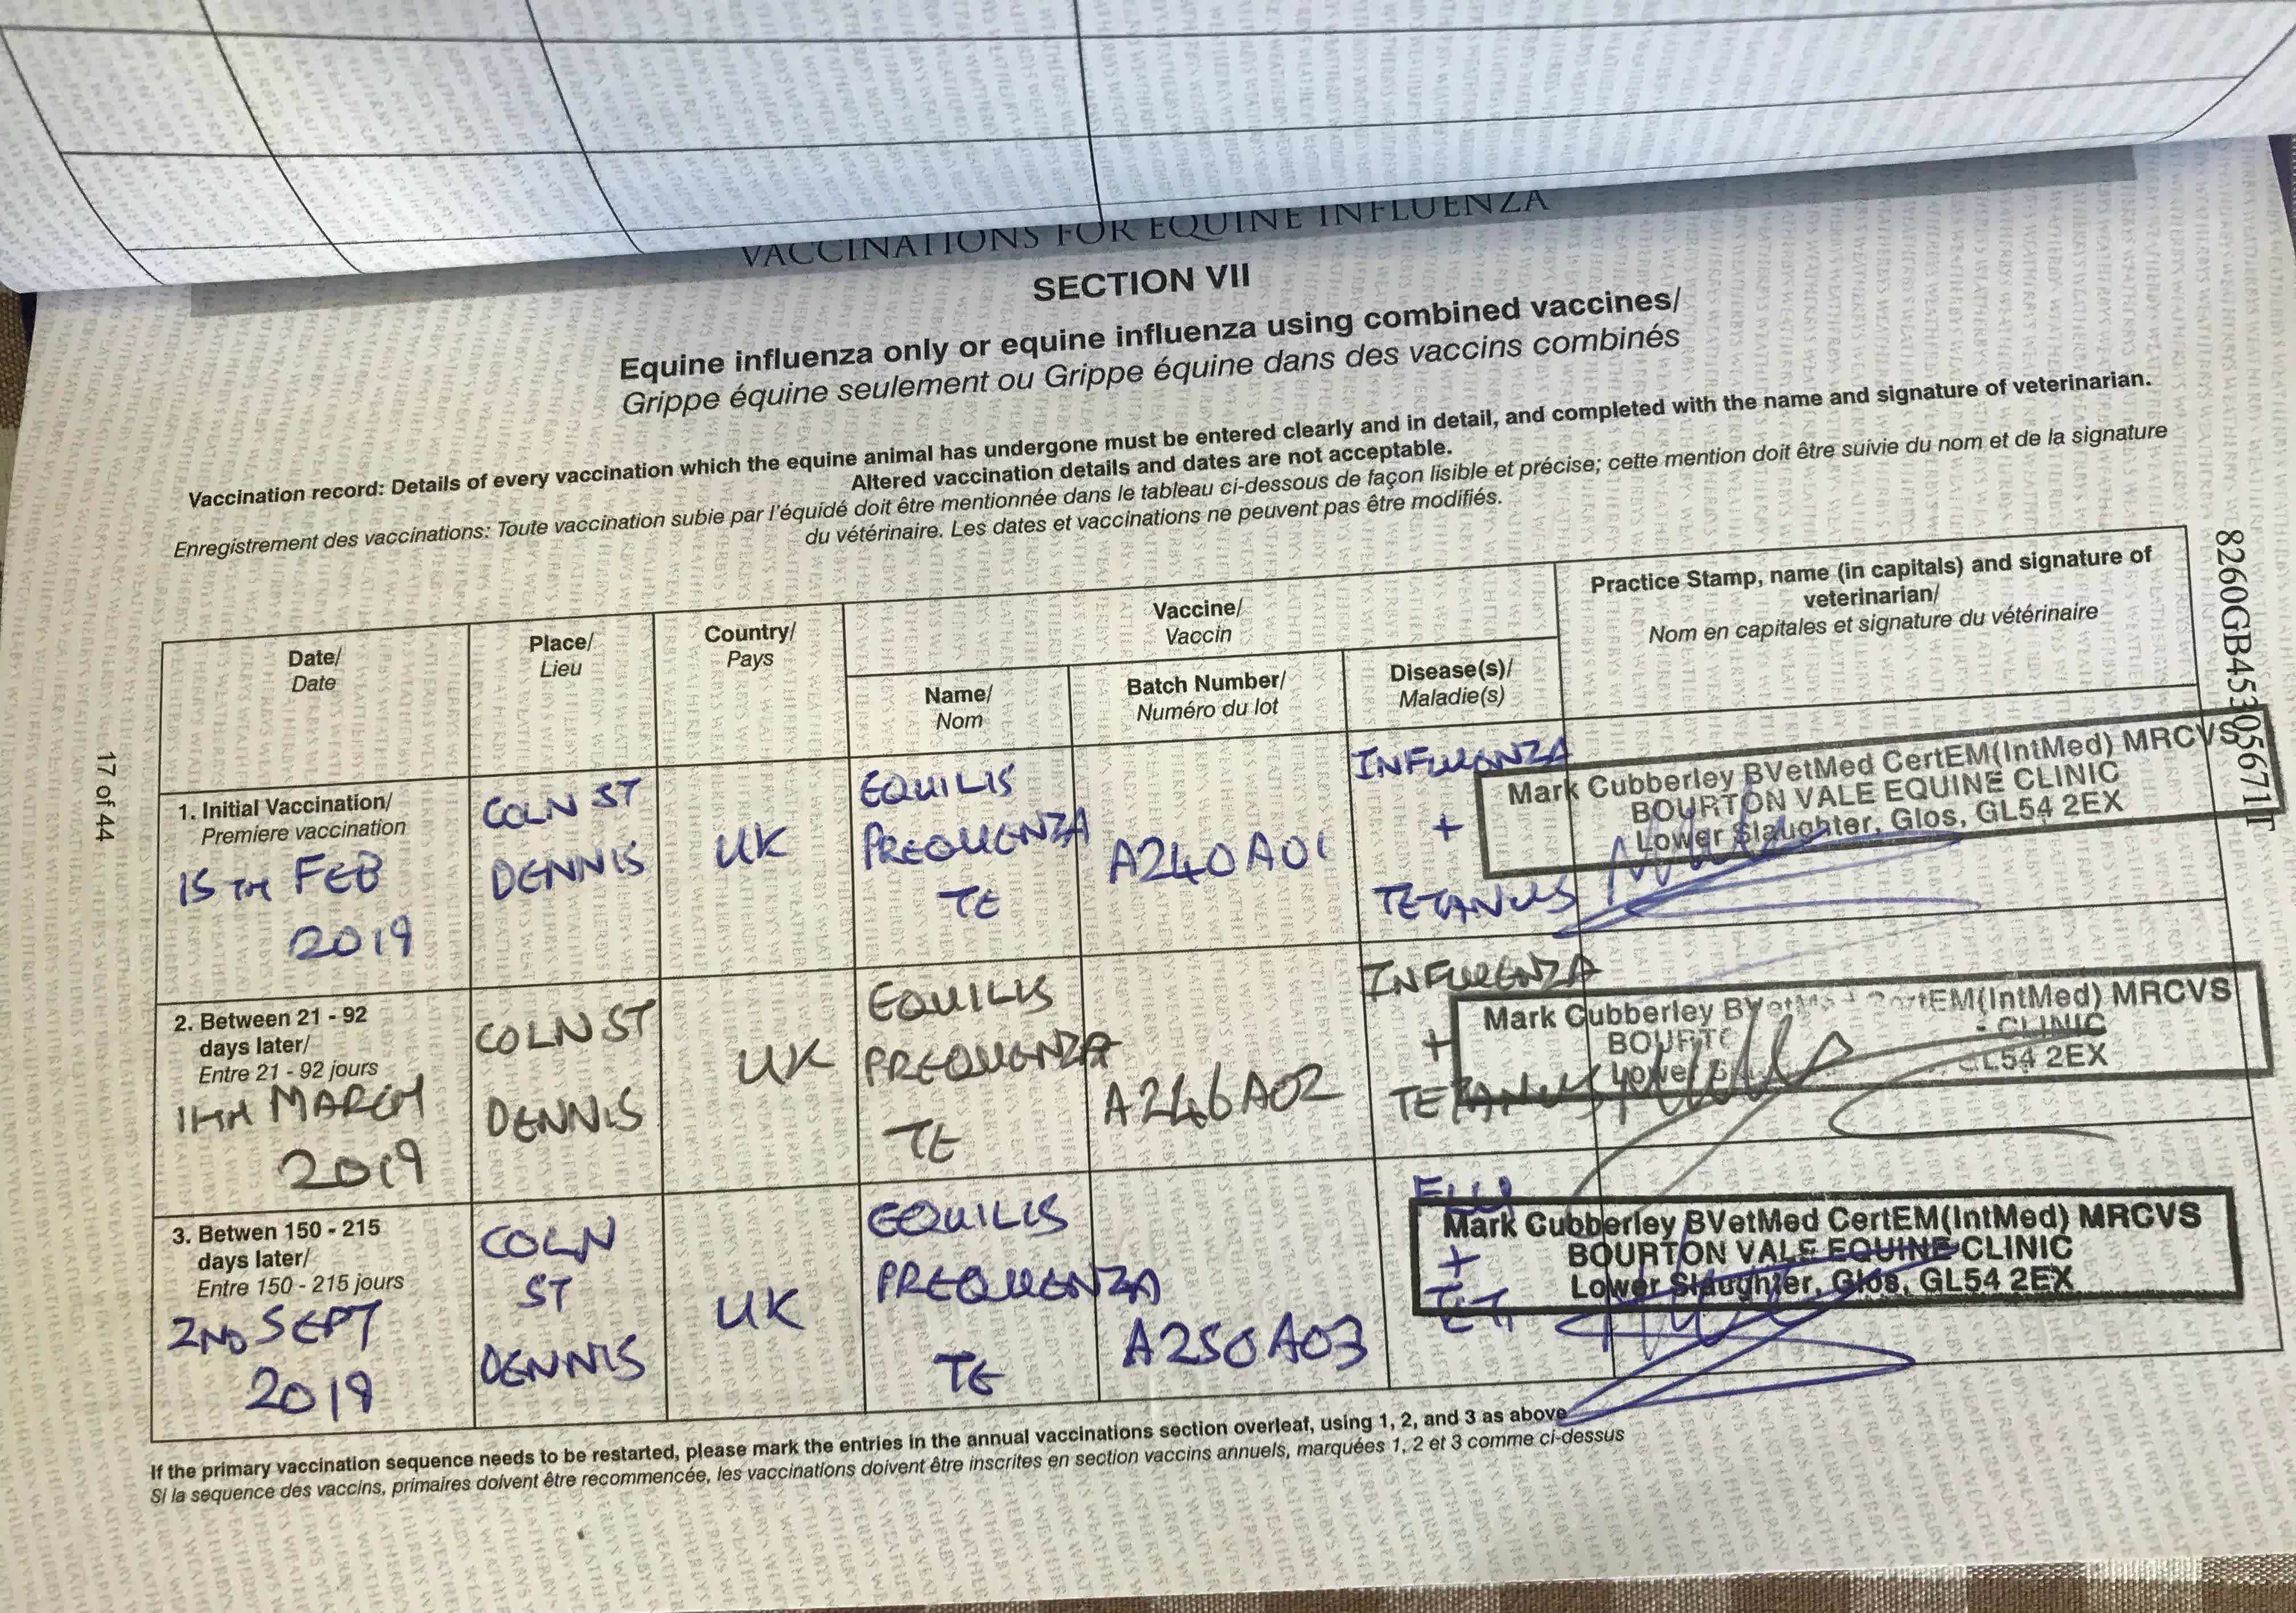 VACCINATIONS FOR EQUINE INFLUENZA
SECTION VII
Equine influenza only or equine influenza using combined vaccines/
Grippe équine seulement ou Grippe équine dans des vaccins combinés
Vaccination record: Details of every vaccination which the equine animal has undergone must be entered clearly and in detail, and completed with the name and signature of veterinarian.
Altered vaccination details and dates are not acceptable.
Enregistrement des vaccinations: Toute vaccination subie par l'équidé doit être mentionnée dans le tableau ci-dessous de façon lisible et précise; cette mention doit être suivie du nom et de la signature
du vétérinaire. Les dates et vaccinations ne peuvent pas être modifiés.
Date/
Date
Place/
Lieu
Country/
Pays
Vaccine/
Vaccin
Name/
Nom
Batch Number/
Numéro du lot
Disease(s)/
Maladie(s)
Practice Stamp, name (in capitals) and signature of
veterinarian/
Nom en capitales et signature du vétérinaire
1. Initial Vaccination/
Premiere vaccination
15TH FEB
2019
COLN ST
DENNIS
UK
EQUILIS
PREQUENZA
TE
A240A01
INFLUENZA
+
TETANUS
Mark Cubberley BVetMed CertEM(IntMed) MRCVS
BOURTON VALE EQUINE CLINIC
Lower Slaughter, Glos, GL54 2EX
2. Between 21 - 92
days later/
Entre 21 - 92 jours
11TH MARCH
2019
COLN ST
DENNIS
UK
EQUILIS
PREQUENZA
TE
A246A02
INFLUENZA
+
TETANUS
Mark Cubberley BVetMed CertEM(IntMed) MRCVS
CLINIC
Lower GL54 2EX
3. Betwen 150 - 215
days later/
Entre 150 - 215 jours
2ND SEPT
2019
COLN
ST
DENNIS
UK
EQUILIS
PREQUENZA
TE
A250A03
FLU
+
TET
Mark Cubberley BVetMed CertEM(IntMed) MRCVS
BOURTON VALE EQUINE CLINIC
Lower Slaughter, Glos, GL54 2EX
If the primary vaccination sequence needs to be restarted, please mark the entries in the annual vaccinations section overleaf, using 1, 2, and 3 as above
Si la sequence des vaccins, primaires doivent être recommencée, les vaccinations doivent être inscrites en section vaccins annuels, marquées 1, 2 et 3 comme ci-dessus
17 of 44
8260GB45305671T